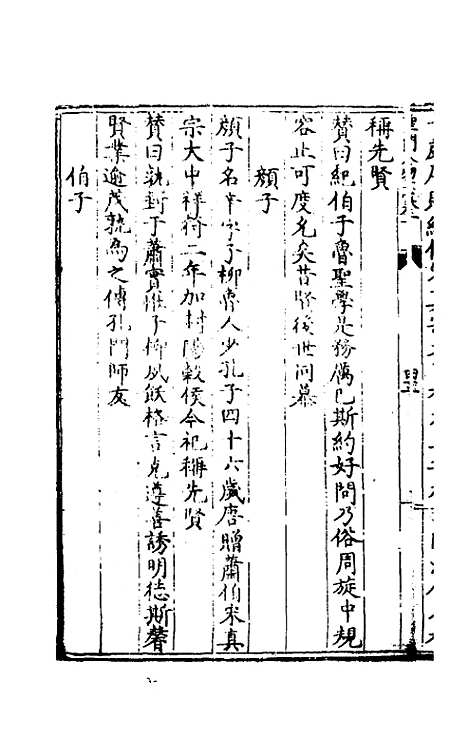 稱先賢
贊曰紀伯子魯聖學是務厲已斯約好問乃俗周旋中規
容止可度允矣昔賢後世問慕
顏子
顏子名辛字子柳魯人少孔子四十六歲唐贈蕭伯宋真
宗大中祥符二年加封陽榖侯今祀稱先賢
贊曰執封于蕭實惟子柳夙飫格言克遵善誘明德斯馨
賢業逾茂孰為之傳孔門師友
伯子